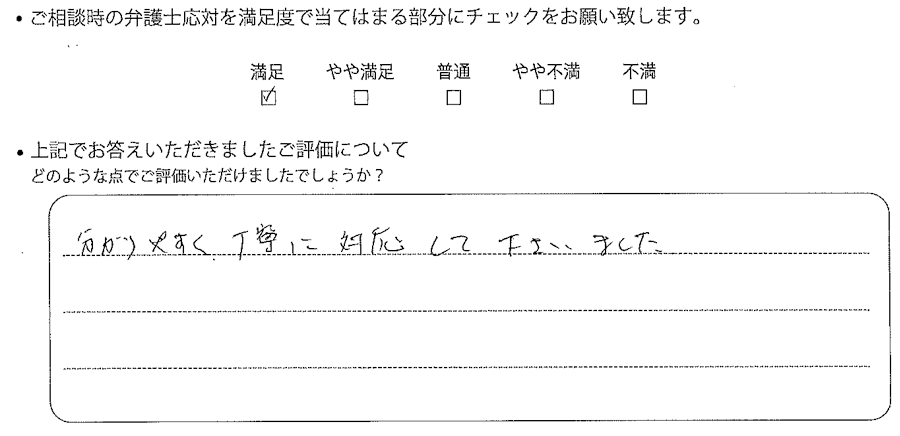 • ご相談時の弁護士応対を満足度で当てはまる部分にチェックをお願い致します。
満足 やや満足 普通 やや不満 不満
☑ □ □ □ □
• 上記でお答えいただきましたご評価について
どのような点でご評価いただけましたでしょうか？
分かりやすく丁寧に対応して下さいました